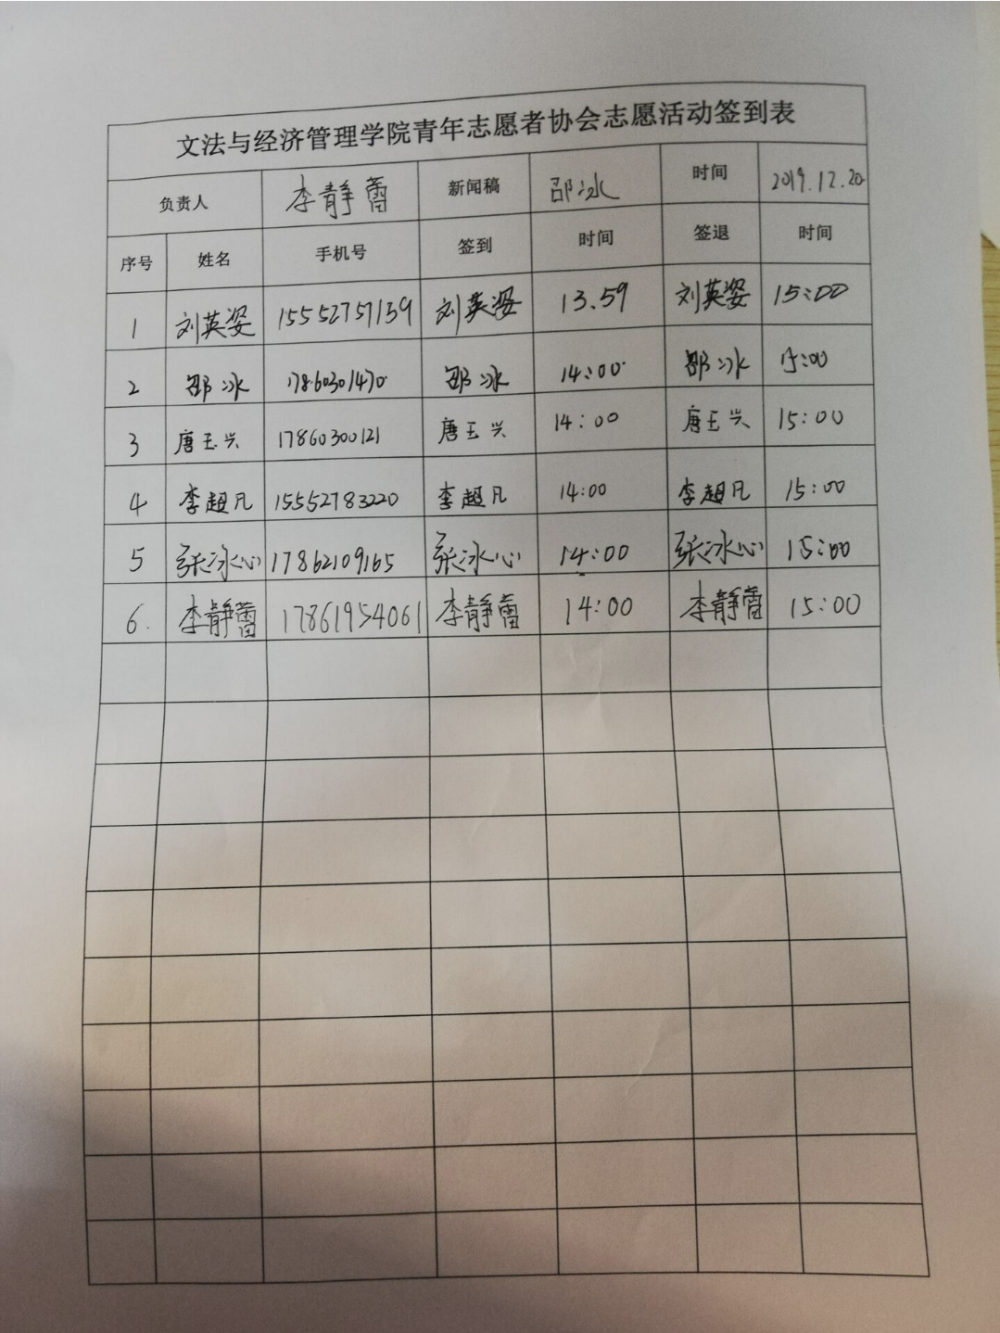 文法与经济管理学院青年志愿者协会志愿活动签到表
负责人 李静蕾 新闻稿 邵冰 时间 2019.12.20
序号 姓名 手机号 签到 时间 签退 时间
1 刘英姿 15552757139 刘英姿 13.59 刘英姿 15:00
2 邵冰 17860301470 邵冰 14:00 邵冰 15:00
3 唐玉兴 17860300121 唐玉兴 14:00 唐玉兴 15:00
4 李超凡 15552783220 李超凡 14:00 李超凡 15:00
5 张冰心 17862109165 张冰心 14:00 张冰心 15:00
6. 李静蕾 17861954061 李静蕾 14:00 李静蕾 15:00